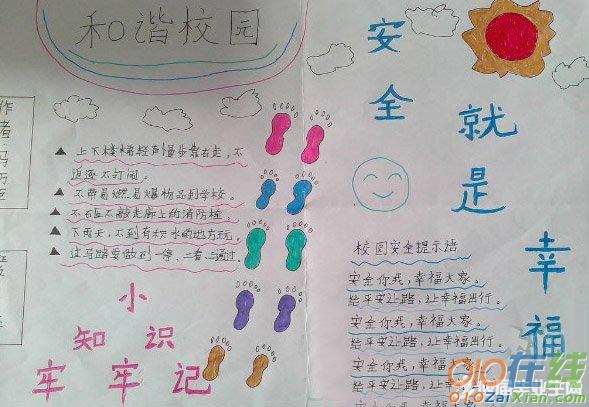 和谐校园
▲ 上下楼梯轻声慢步靠右走，不
追逐不打闹。
▲ 不带易燃易爆物品到学校。
▲ 不舌区不敲走廊上的消防栓。
▲ 下雨天，不到有积水的地方玩。
▲ 过马路要做到一停、二看、三通过。
小
知识
牢牢记
安全
就是
幸福
校园安全提示语
安全你我，幸福大家。
给平安让路，让幸福出行。
安全你我，幸福大家。
给平安让路，让幸福出行。
安全你我，幸福大家。
给平安让路，让幸福出行。
作者
010在线
010ZaiXian.com